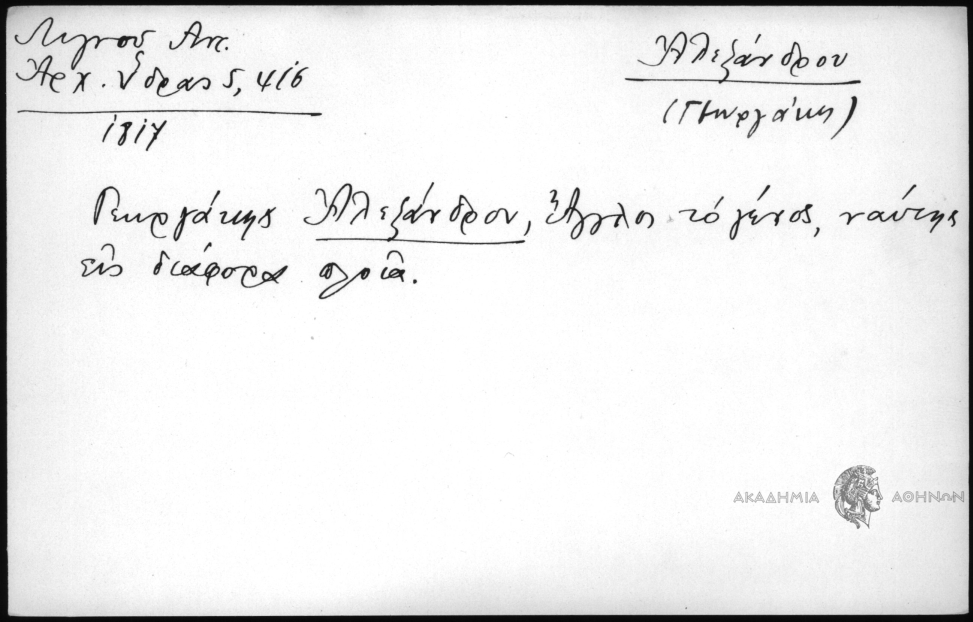 Λιγνού Αντ.
Ἀρχ. Ὕδρας 5, 416
1817
Ἀλεξάνδρου
(Γεωργάκης)
Γεωργάκης Ἀλεξάνδρου, Ἄγγλος τό γένος, ναύτης
εἰς διάφορα πλοῖα.
ΑΚΑΔΗΜΙΑ ΑΘΗΝΩΝ